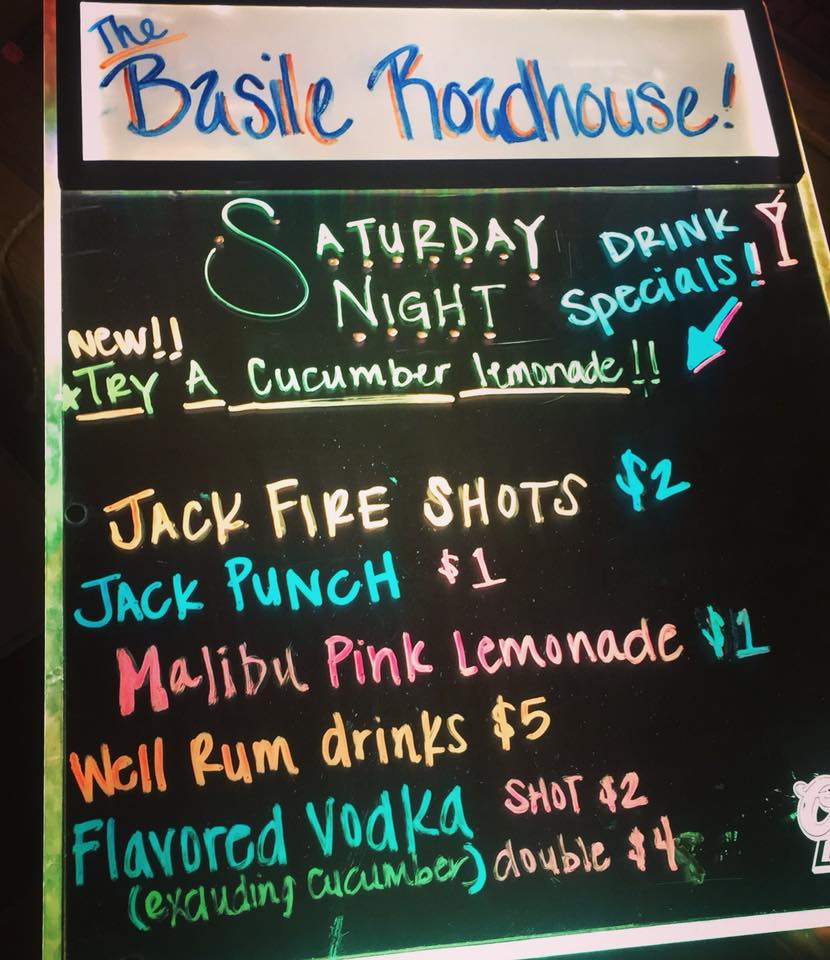 The
Basile Roadhouse!
SATURDAY
NIGHT
DRINK
Specials!
New!!
TRY A Cucumber lemonade!!
JACK FIRE SHOTS $2
JACK PUNCH $1
Malibu Pink Lemonade $1
Well Rum drinks $5
Flavored Vodka SHOT $2
(excluding cucumber) double $4